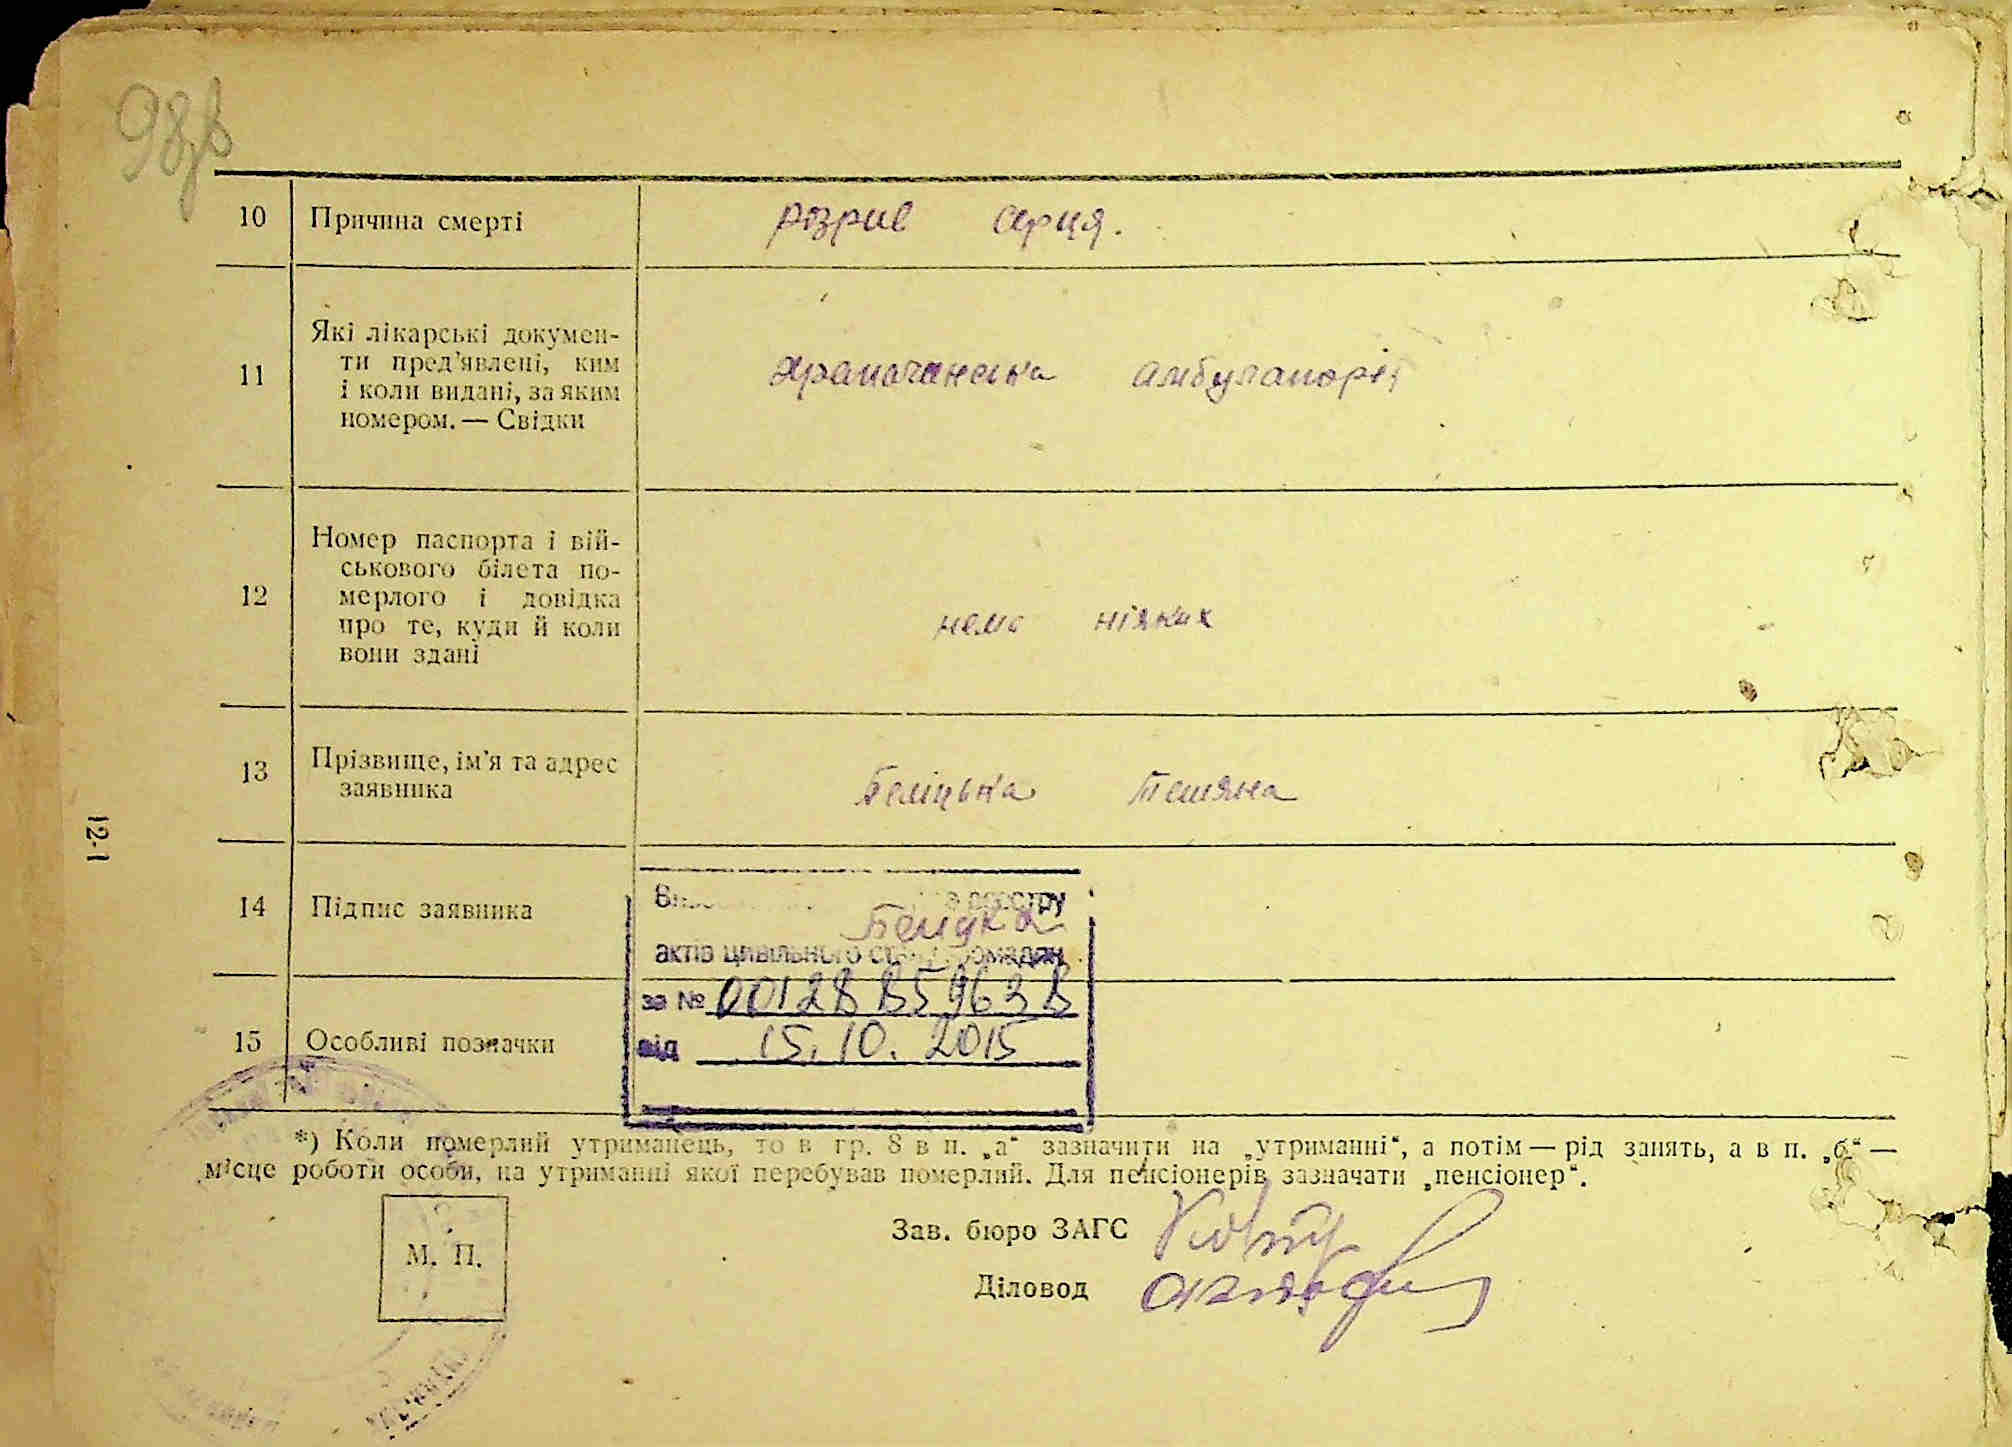 98
10 Причина смерті розрив серця.
11 Які лікарські докумен-
ти пред'явлені, ким
і коли видані, за яким
номером. — Свідки
амбулаторія
12 Номер паспорта і вій-
ськового білета по-
мерлого і довідка
про те, куди й коли
вони здані
нема ніяких
13 Прізвище, ім'я та адрес
заявника
Беліцька Тетяна
14 Підпис заявника
реєстру
актів цивільного стану громадян
за № 00128
15 Особливі позначки
від 15.10.2015
*) Коли померлий утриманець, то в гр. 8 в п. „а“ зазначити на „утриманні“, а потім — рід занять, а в п. „б“ —
місце роботи особи, на утриманні якої перебував померлий. Для пенсіонерів зазначати „пенсіонер“.
М. П.
Зав. бюро ЗАГС
Діловод
12-1